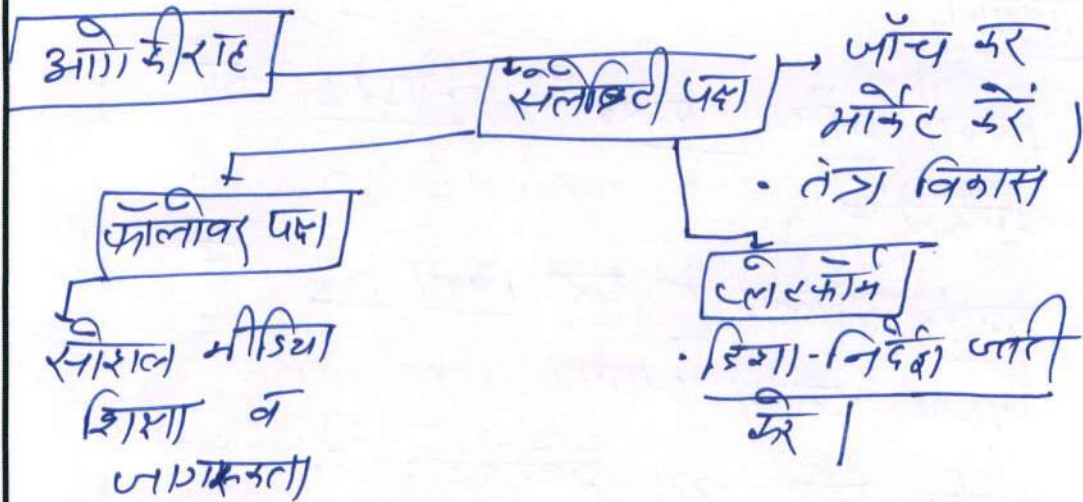 आगे की राह
सेलेब्रिटी पक्ष → जाँच कर
मार्केट करें।
• तंत्र विकास
फॉलोवर पक्ष
सोशल मीडिया
शिक्षा व
जागरूकता
प्लेटफॉर्म
• दिशा-निर्देश जारी
करे।